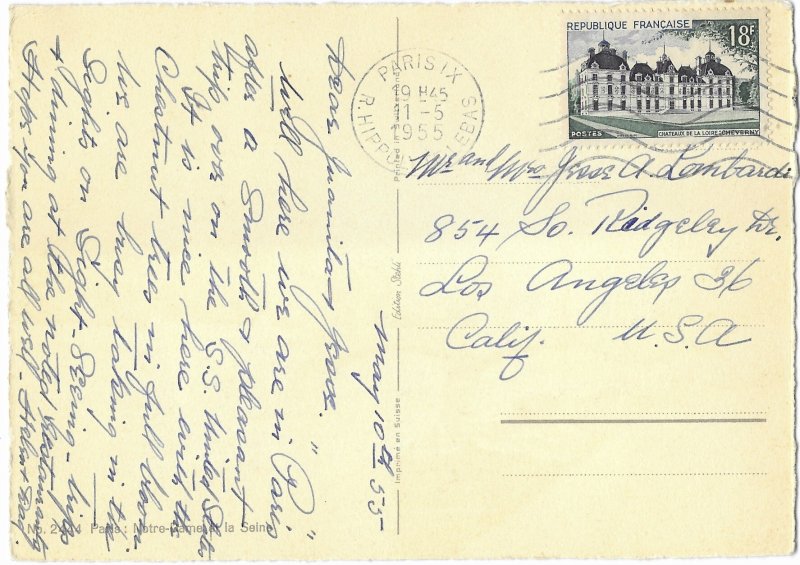 May 10th 55
Dear Juanita & Jesse.
Well here we are in "Paris"
after a Smooth & pleasant
trip over on the S.S. United States
It is nice here with the
Chestnut trees in full bloom.
We are busy taking in the
Sights on Sight-Seeing-trips
& dining at the noted restaurants
Hope you are all well -
No. 2424 Paris: Notre-Dame et la Seine
Printed in Switzerland
Edition Stehli
Imprimé en Suisse
PARIS IX
19 H45
11-5
1955
R. HIPPOLYTE LEBAS
REPUBLIQUE FRANÇAISE
18F
POSTES
CHATEAUX DE LA LOIRE: CHEVERNY
Mr and Mrs Jesse A Lombardi
854 So. Ridgeley Dr.
Los Angeles 36
Calif. U.S.A